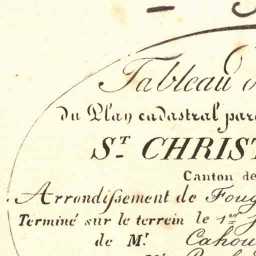 Tableau
du Plan cadastral par
ST. CHRIST
Canton de
Arrondissement de Foug
Terminé sur le terrein le 1er
de Mr. Cahou